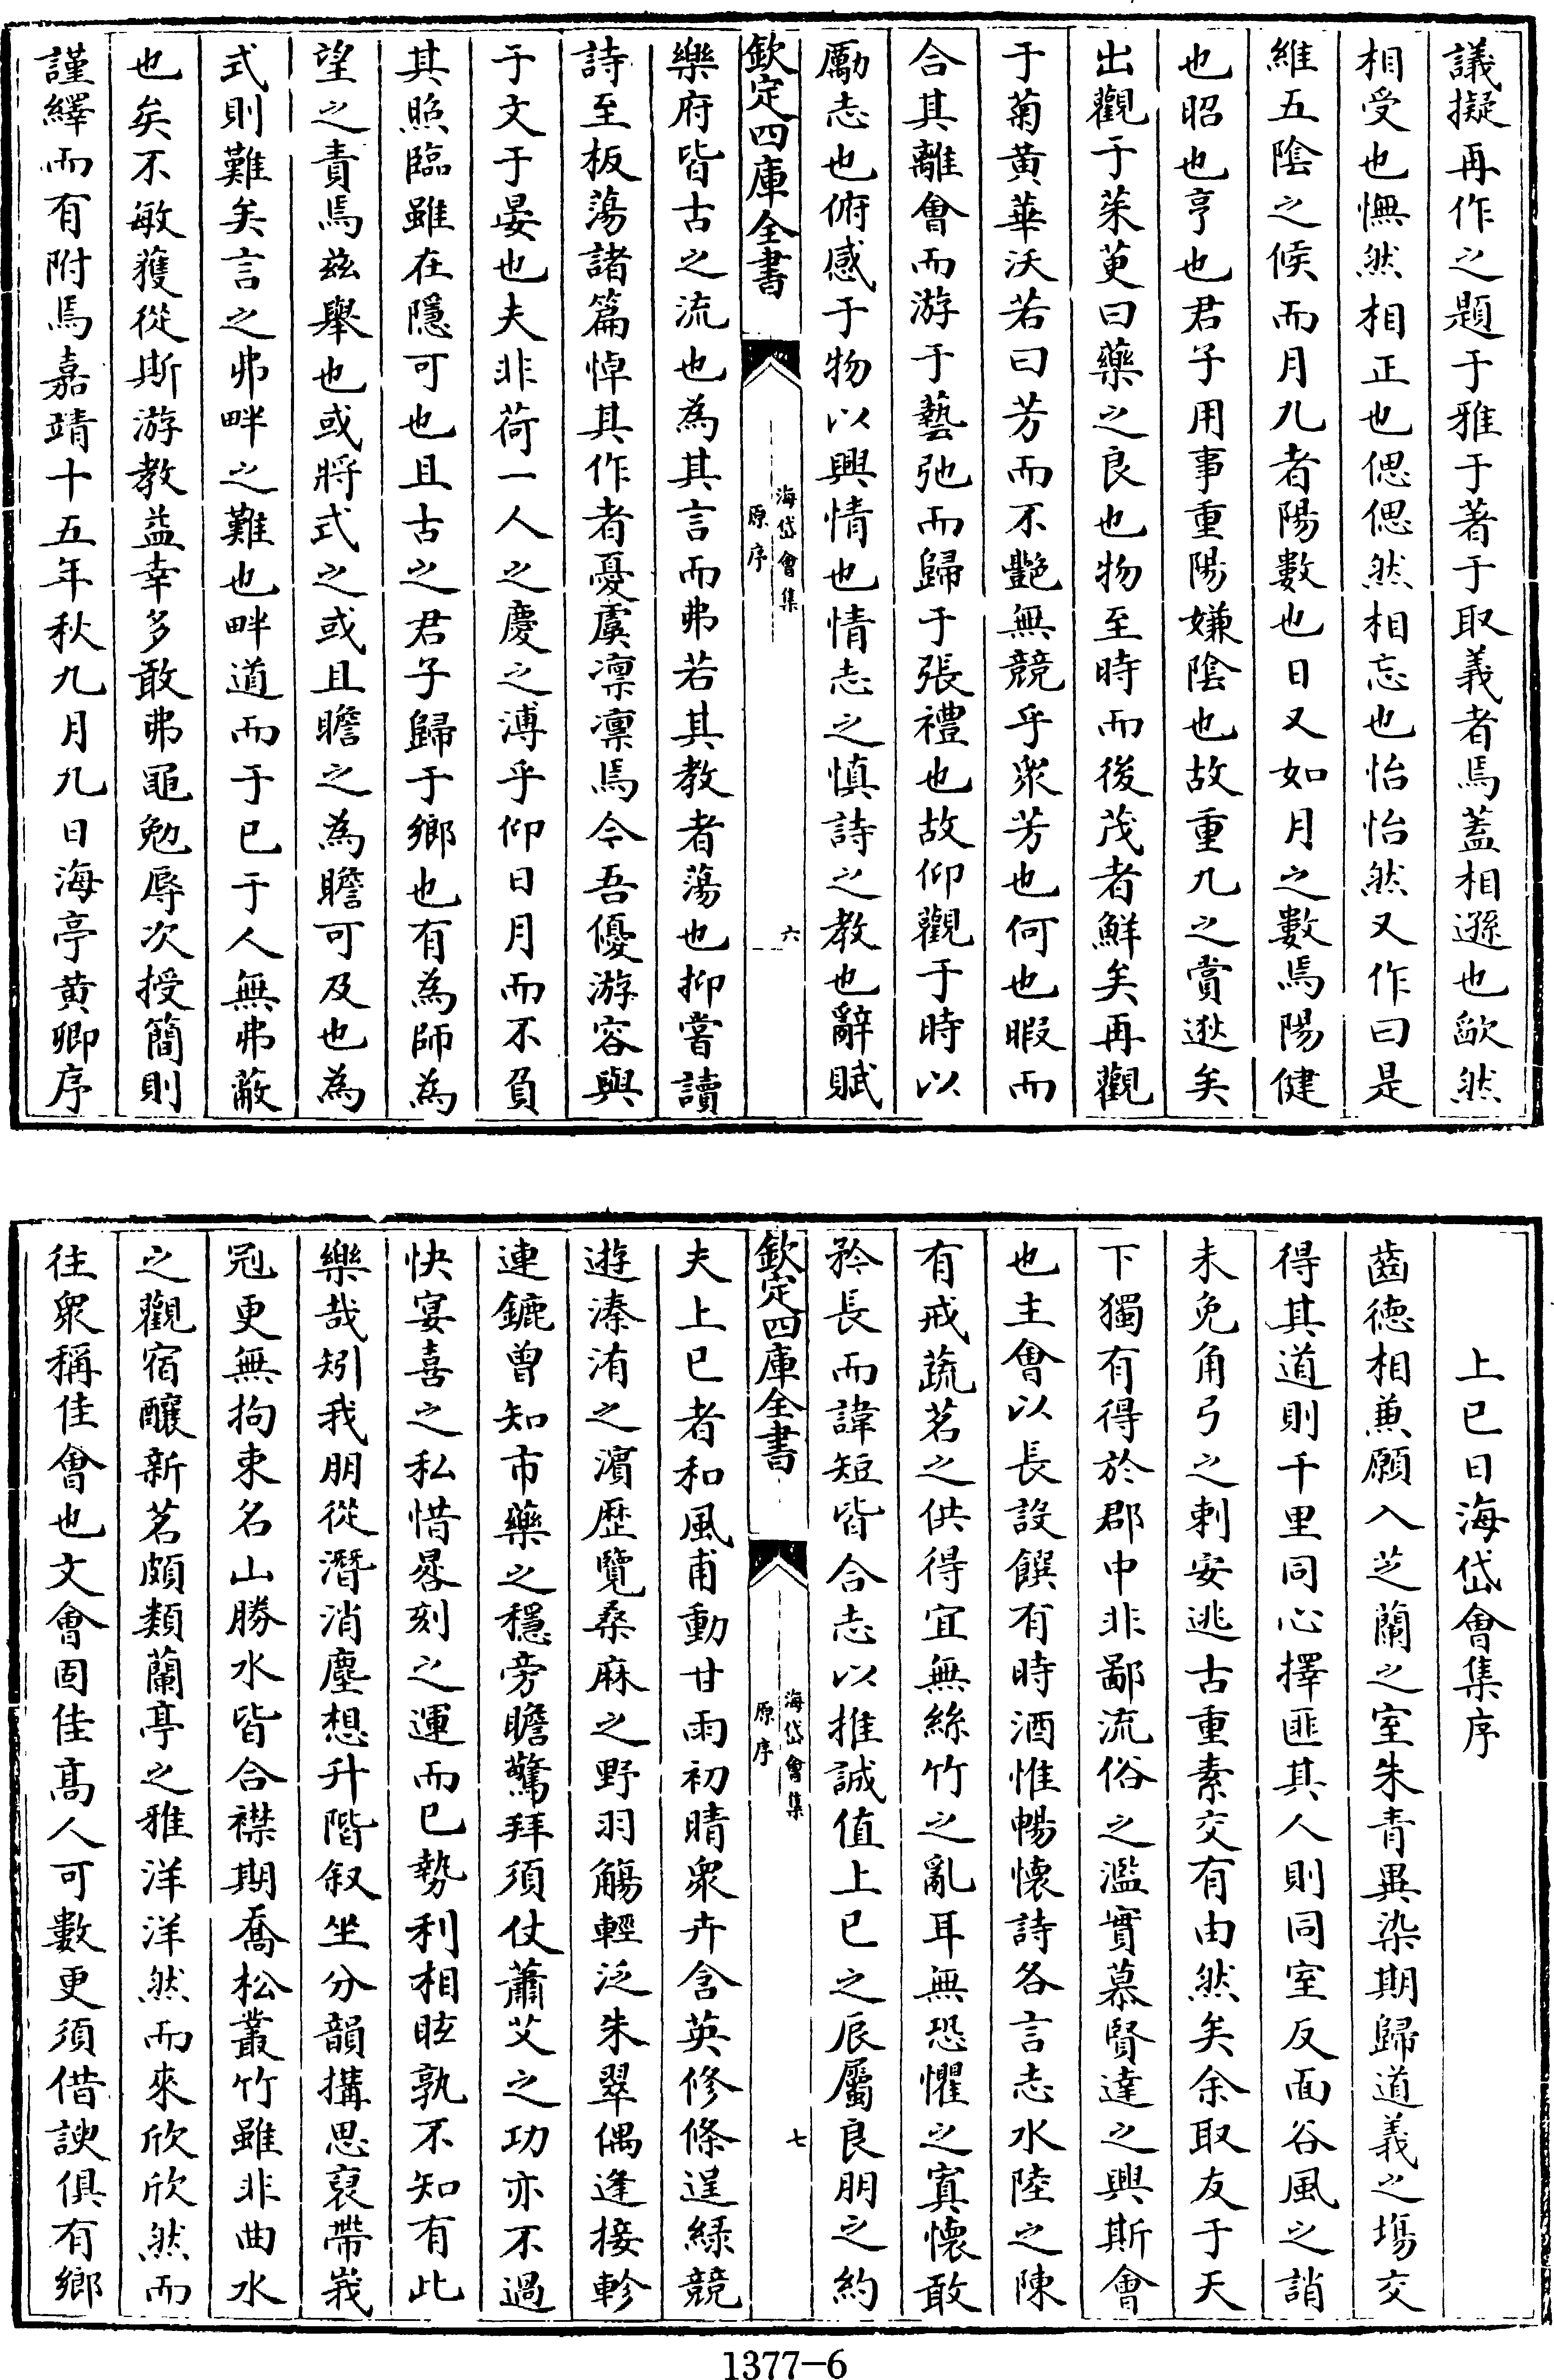 議擬再作之題于雅于著于取義者焉蓋相遜也歉然
相受也憮然相正也偲偲然相忘也怡怡然又作曰是
維五陰之候而月九者陽數也日又如月之數焉陽健
也昭也亨也君子用事重陽嫌陰也故重九之賞逖矣
出觀于茱萸曰藥之良也物至時而後茂者鮮矣再觀
于菊黄華沃若曰芳而不艷無競乎衆芳也何也暇而
合其離會而游于藝弛而歸于張禮也故仰觀于時以
勵志也俯感于物以興情也情志之慎詩之教也辭賦
欽定四庫全書
海岱會集
原序
六
樂府皆古之流也為其言而弗若其教者蕩也抑嘗讀
詩至板蕩諸篇悼其作者憂虞凛凛焉今吾優游容與
于文于晏也夫非荷一人之慶之溥乎仰日月而不負
其照臨雖在隱可也且古之君子歸于鄉也有為師為
望之責焉兹舉也或將式之或且瞻之為瞻可及也為
式則難矣言之弗畔之難也畔道而于已于人無弗蔽
也矣不敏獲從斯游教益幸多敢弗黽勉辱次授簡則
謹繹而有附焉嘉靖十五年秋九月九日海亭黄卿序
上巳日海岱會集序
齒德相兼願入芝蘭之室朱青異染期歸道義之塲交
得其道則千里同心擇匪其人則同室反面谷風之誚
未免角弓之刺安逃古重素交有由然矣余取友于天
下獨有得於郡中非鄙流俗之濫實慕賢達之興斯會
也主會以長設饌有時酒惟暢懷詩各言志水陸之陳
有戒蔬茗之供得宜無絲竹之亂耳無恐懼之寘懷敢
矜長而諱短皆合志以推誠值上巳之辰屬良朋之約
欽定四庫全書
海岱會集
原序
七
夫上巳者和風甫動甘雨初晴衆卉含英修條逞緑競
遊溱洧之濵歴覽桑麻之野羽觴輕泛朱翠偶逢接軫
連鑣曾知市藥之穩旁瞻驚拜須仗蕭艾之功亦不過
快宴喜之私惜晷刻之運而已勢利相眩孰不知有此
樂哉矧我朋從潛消塵想升階叙坐分韻搆思裒帶峩
冠更無拘束名山勝水皆合襟期喬松叢竹雖非曲水
之觀宿釀新茗頗類蘭亭之雅洋洋然而來欣欣然而
往衆稱佳會也文會固佳髙人可數更須借諛俱有鄉
1377-6